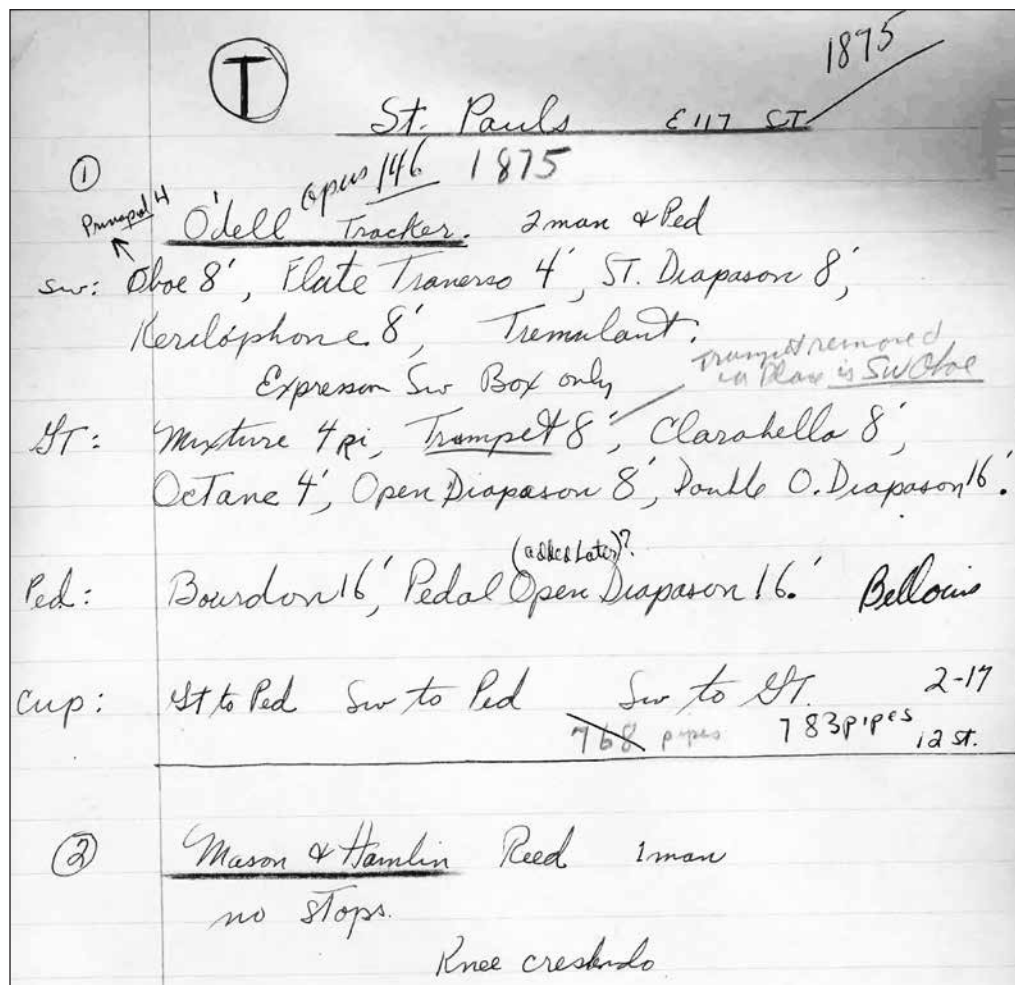 1875
T
St. Pauls E 117 ST
① opus 146 1875
Principal 4
O'dell Tracker. 2 man & Ped
Sw: Oboe 8', Flute Traverso 4', ST. Diapason 8',
Kerilóphone 8', Tremulant.
Trumpet removed
in Place is Sw Oboe
Expression Sw Box only
GT: Mixture 4 Ri, Trumpet 8', Clarabella 8',
Octave 4', Open Diapason 8', Double O. Diapason 16'.
(added Later)?
Ped: Bourdon 16', Pedal Open Diapason 16'.
Cup: GT to Ped Sw to Ped Sw to GT. 2-17
768 pipes 783 pipes 12 st.
② Mason & Hamlin Reed 1 man
no stops.
Knee crescendo